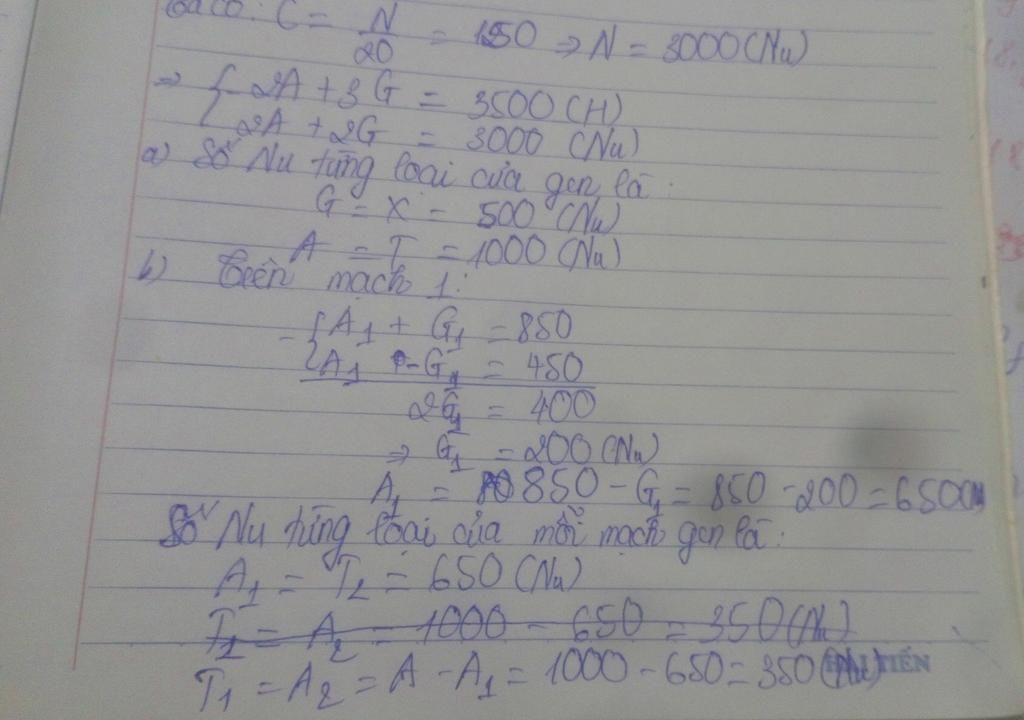 C = N/20 = 150 ⇒ N = 3000 (Nu)
⇒ { 2A + 3G = 3500 (H)
2A + 2G = 3000 (Nu)
a) Số Nu từng loại của gen là:
G = X = 500 (Nu)
A = T = 1000 (Nu)
b) Trên mạch 1:
- { A1 + G1 = 850
A1 - G1 = 450
2G1 = 400
⇒ G1 = 200 (Nu)
A1 = 850 - G1 = 850 - 200 = 650
Số Nu từng loại của mỗi mạch gen là:
A1 = T2 = 650 (Nu)
T1 = A2 = 1000 - 650 = 350 (Nu)
T1 = A2 = A - A1 = 1000 - 650 = 350 (Nu)
TIẾN